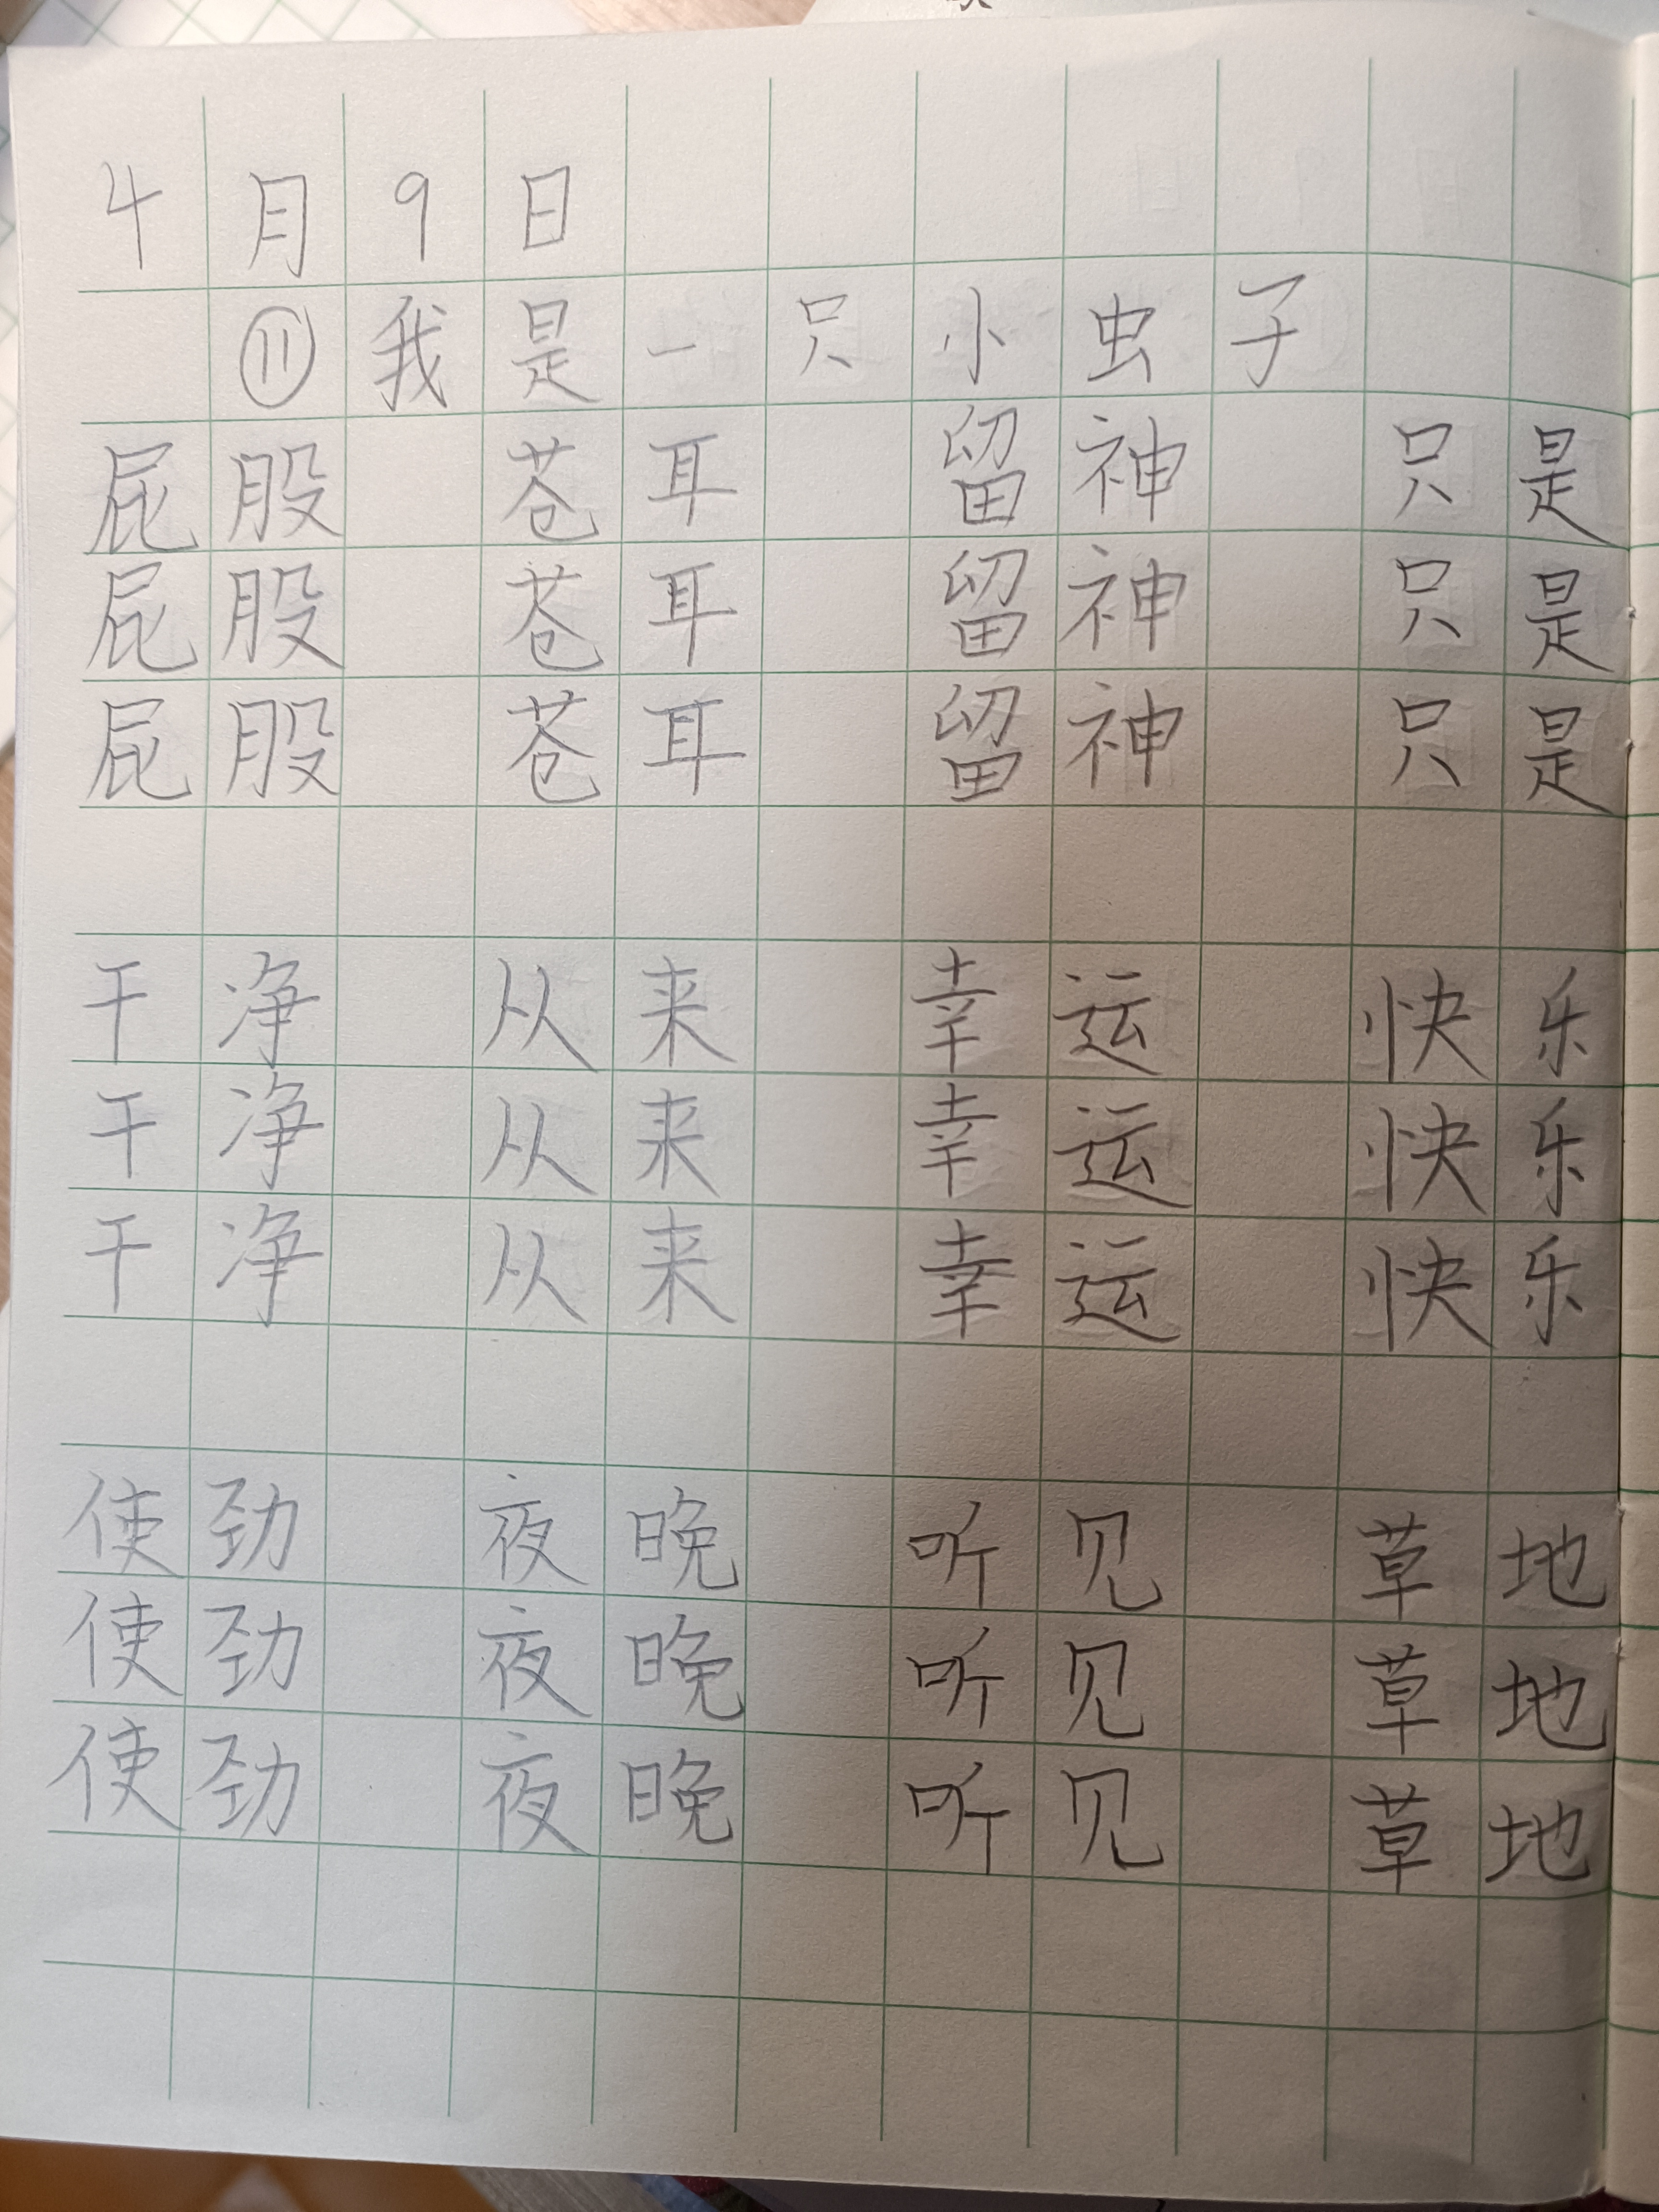 4月9日
⑪我是一只小虫子
屁股 苍耳 留神 只是
屁股 苍耳 留神 只是
屁股 苍耳 留神 只是
干净 从来 幸运 快乐
干净 从来 幸运 快乐
干净 从来 幸运 快乐
使劲 夜晚 听见 草地
使劲 夜晚 听见 草地
使劲 夜晚 听见 草地